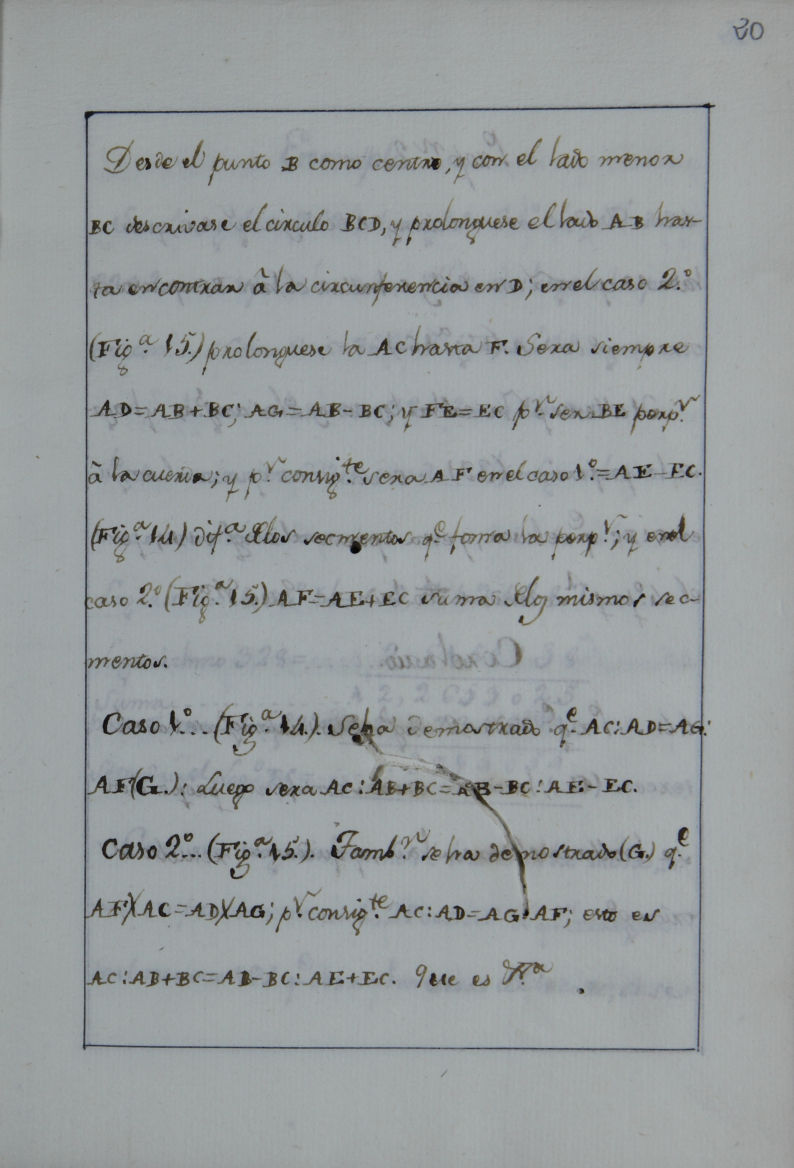 20
Desde el punto B como centro, y con el lado menor
BC descrivase el circulo BCD, y prolonguese el lado AB has-
ta encontrar â la circunferencia en D; en el caso 2.º
(Fig.ª 15.) prolonguese la AC hasta F. Sera siempre
AD=AB+BC; AG=AB-BC; y FE=EC p.r ser BE perp.r
â la cuerda; y p.r consig.te sera AF en el caso 1.º=AE-EC.
(Fig.ª 14.) dif.ª de los secmentos q.e forma la perp.r; y en el
caso 2.º (Fig.ª 15.) AF=AE+EC suma de los mismos sec-
mentos.
Caso 1.º.. (Fig.ª 14.). Se ha demostrado q.e AC:AD=AG:
AF(G.): Luego sera AC:AB+BC=AB-BC:AE-EC.
Caso 2.º.. (Fig.ª 15.). Tamb.n se ha demostrado (G.) q.e
AFXAC=ADXAG; p.r consig.te AC:AD=AG:AF; esto es
AC:AB+BC=AB-BC:AE+EC. Que es